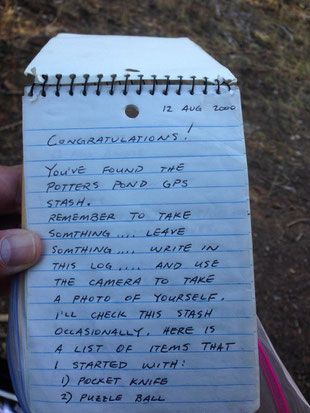 12 AUG 2000
CONGRATULATIONS!
YOU'VE FOUND THE
POTTERS POND GPS
STASH.
REMEMBER TO TAKE
SOMTHING.... LEAVE
SOMTHING.... WRITE IN
THIS LOG.... AND USE
THE CAMERA TO TAKE
A PHOTO OF YOURSELF.
I'LL CHECK THIS STASH
OCCASIONALLY. HERE IS
A LIST OF ITEMS THAT
I STARTED WITH:
1) POCKET KNIFE
2) PUZZLE BALL